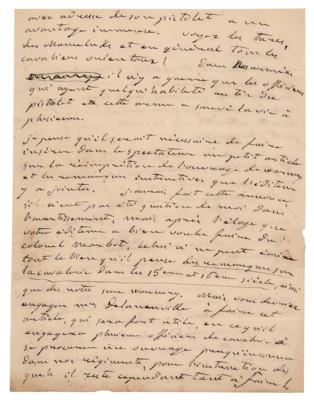 avec adresse de son pistolet a un
avantage immense. voyez les turcs,
les Mamelucks et en général tous les
cavaliers orientaux ! Dans nos armées
il n'y a guère que les officiers
qui ayent quelqu'habileté au tir du
pistolet et cette arme a sauvé la vie à
plusieurs.
je pense qu'il serait nécessaire de faire
insérer dans le spectateur un petit article
sur la réimpression de l'ouvrage de warnery
et les remarques instructives que l'éditeur
y a jointes. j'aurais fait cette annonce
s'il n'eut pas été question de moi dans
l'avertissement, mais après l'éloge que
votre éditeur a bien voulu faire du
colonel Marbot, celui-ci ne peut écrire
tout le bien qu'il pense des remarques sur
la cavalerie dans les 15eme et 16eme siècle, ainsi
que des notes sur warnery. Mais vous devriez
engager mr Delaneuville à faire cet
article, qui sera fort utile, en ce qu'il
engagera plusieurs officiers de cavalerie à
se procurer un ouvrage presqu'inconnu
dans nos régiments, pour l'instruction des
quels il reste cependant tant à faire !